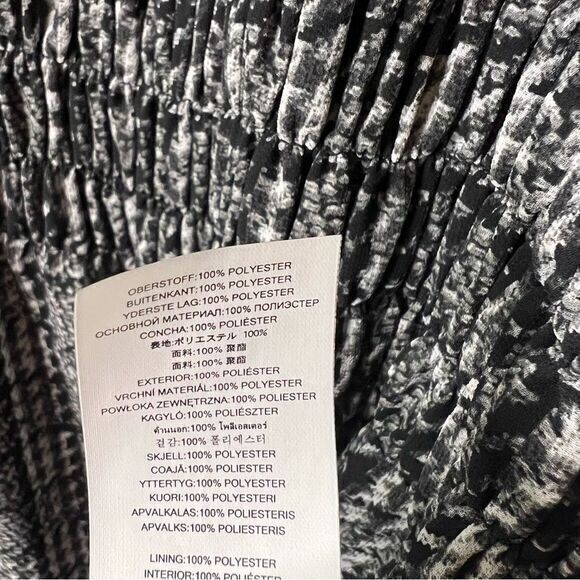 OBERSTOFF:100% POLYESTER
BUITENKANT:100% POLYESTER
YDERSTE LAG:100% POLYESTER
ОСНОВНОЙ МАТЕРИАЛ:100% ПОЛИЭСТЕР
CONCHA:100% POLIÉSTER
表地:ポリエステル 100%
面料:100% 聚酯
面料:100% 聚酯
EXTERIOR:100% POLIÉSTER
VRCHNÍ MATERIÁL:100% POLYESTER
POWŁOKA ZEWNĘTRZNA:100% POLYESTER
KAGYLÓ:100% POLIÉSZTER
ด้านนอก:100% โพลีเอสเตอร์
겉감:100% 폴리에스터
SKJELL:100% POLYESTER
COAJĂ:100% POLYESTER
YTTERTYG:100% POLYESTER
KUORI:100% POLYESTERI
APVALKALAS:100% POLIESTERIS
APVALKS:100% POLIESTERIS
LINING:100% POLYESTER
INTERIOR:100% POLYESTER